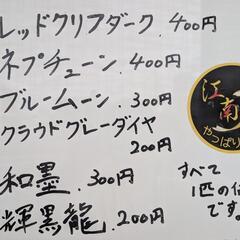 レッドクリフダーク.400円
ネプチューン.400円
ブルームーン.300円
クラウドグレーダイヤ
200円
和墨.300円
輝黒龍.200円
江南
やっぱり
すべて
1匹の
です